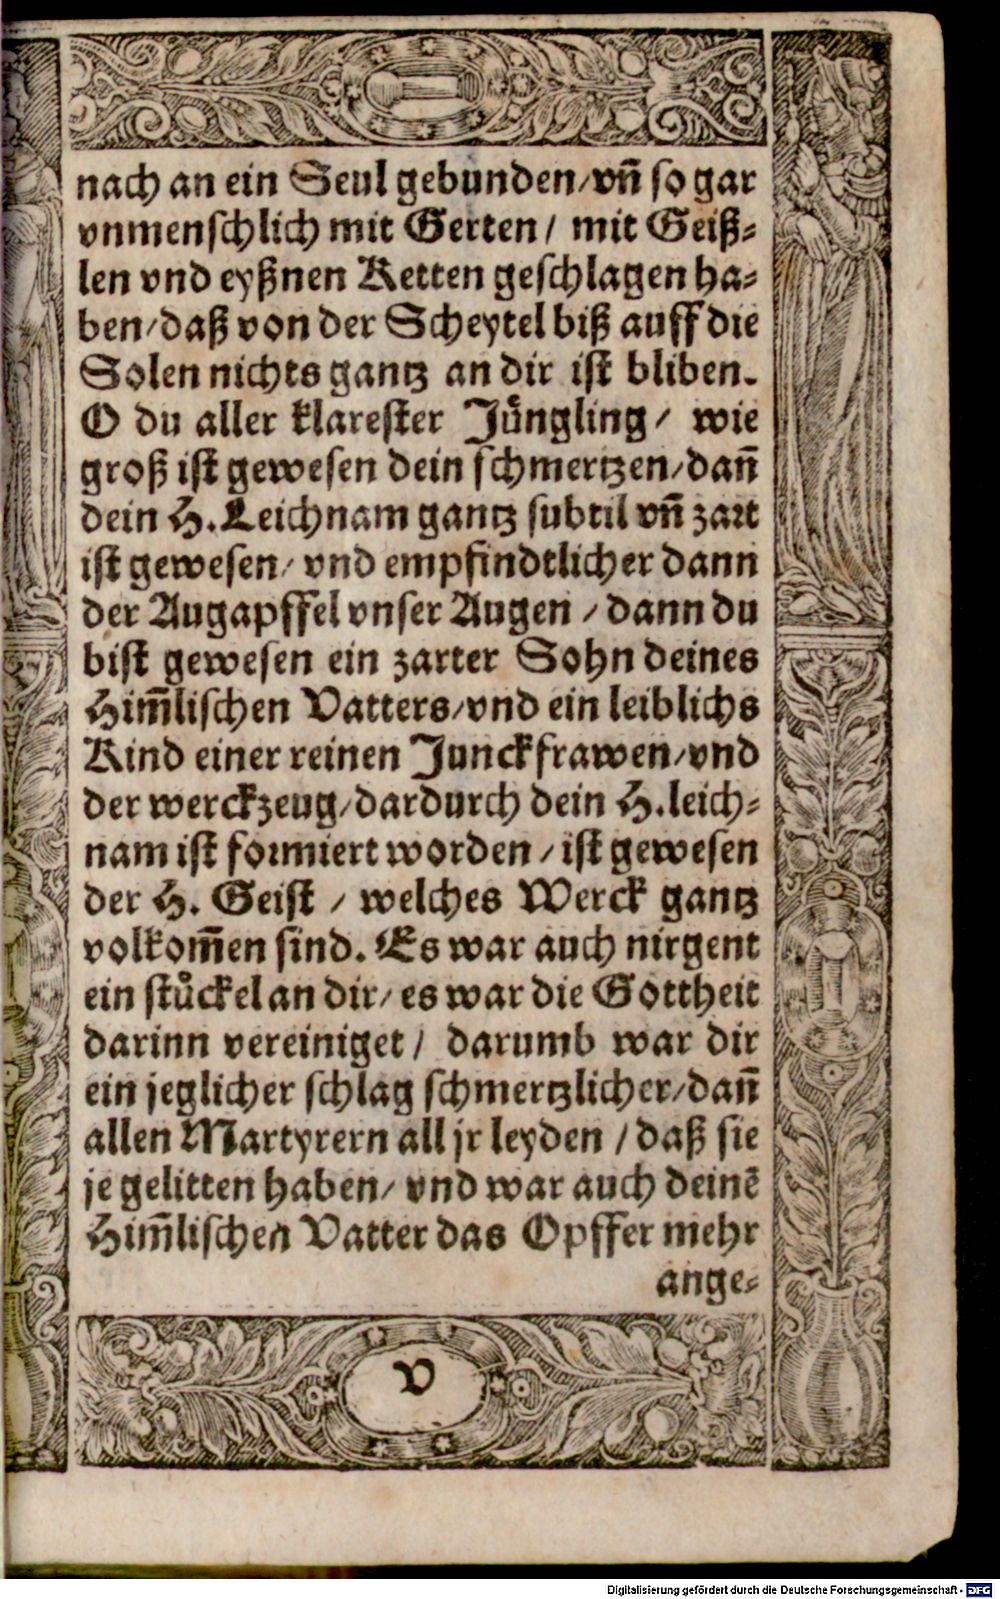 nach an ein Seul gebunden/vñ so gar
vnmenschlich mit Gerten/ mit Geiß-
len vnd eyßnen Ketten geschlagen ha-
ben/daß von der Scheytel biß auff die
Solen nichts gantz an dir ist bliben.
O du aller klarester Jůngling/ wie
groß ist gewesen dein schmertzen/dañ
dein H. Leichnam gantz subtil vñ zart
ist gewesen/ vnd empfindtlicher dann
der Augapffel vnser Augen / dann du
bist gewesen ein zarter Sohn deines
Him̃lischen Vatters/vnd ein leiblichs
Kind einer reinen Junckfrawen/vnd
der werckzeug/dardurch dein H. leich-
nam ist formiert worden / ist gewesen
der H. Geist / welches Werck gantz
volkom̃en sind. Es war auch nirgent
ein stůckel an dir/ es war die Gottheit
darinn vereiniget / darumb war dir
ein jeglicher schlag schmertzlicher/dañ
allen Martyrern all jr leyden / daß sie
je gelitten haben/ vnd war auch deinē
Him̃lischen Vatter das Opffer mehr
ange-
v
Digitalisierung gefördert durch die Deutsche Forschungsgemeinschaft - DFG